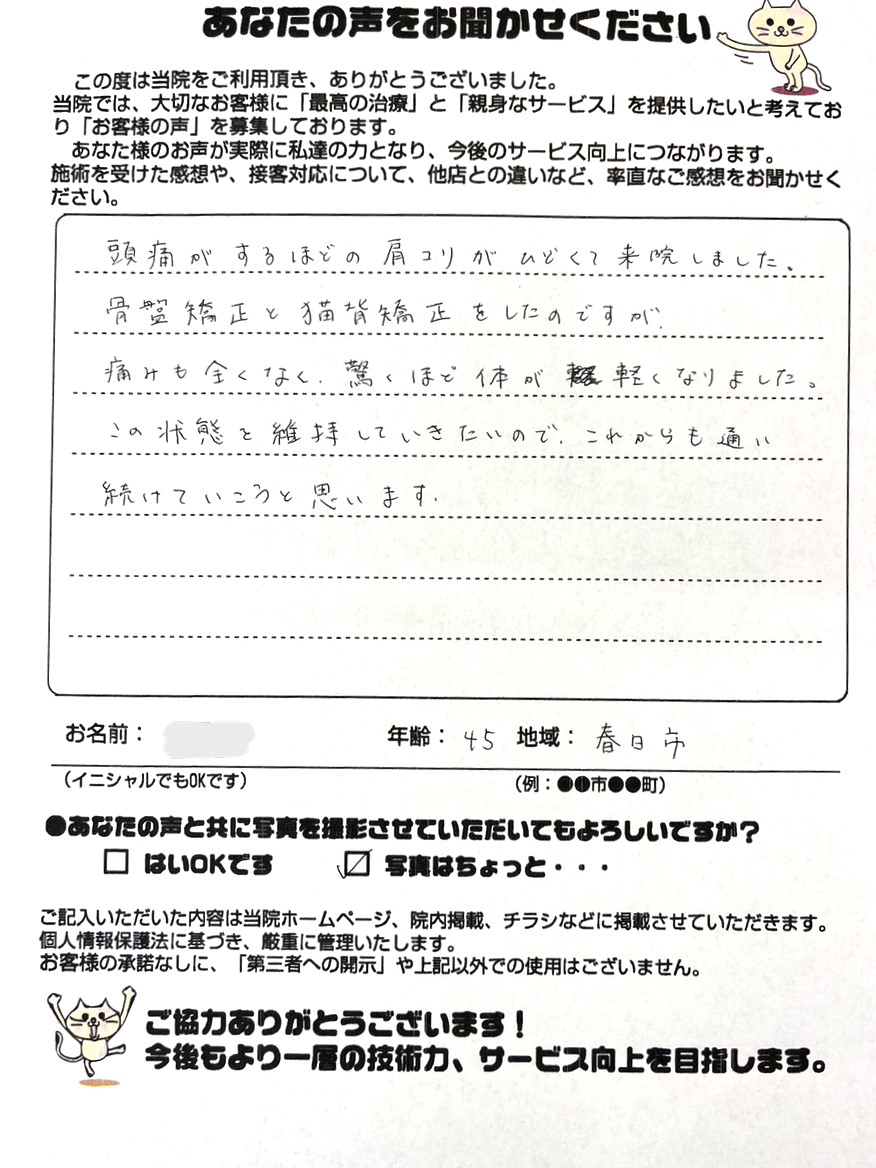 あなたの声をお聞かせください
この度は当院をご利用頂き、ありがとうございました。
当院では、大切なお客様に「最高の治療」と「親身なサービス」を提供したいと考えてお
り「お客様の声」を募集しております。
あなた様のお声が実際に私達の力となり、今後のサービス向上につながります。
施術を受けた感想や、接客対応について、他店との違いなど、率直なご感想をお聞かせく
ださい。
頭痛がするほどの肩コリがひどくて来院しました。
骨盤矯正と猫背矯正をしたのですが、
痛みも全くなく、驚くほど体が軽くなりました。
この状態を維持していきたいので、これからも通い
続けていこうと思います。
お名前： 年齢：45 地域：春日市
（イニシャルでもOKです） （例：●●市●●町）
●あなたの声と共に写真を撮影させていただいてもよろしいですか？
□ はいOKです ☑ 写真はちょっと・・・
ご記入いただいた内容は当院ホームページ、院内掲載、チラシなどに掲載させていただきます。
個人情報保護法に基づき、厳重に管理いたします。
お客様の承諾なしに、「第三者への開示」や上記以外での使用はございません。
ご協力ありがとうございます！
今後もより一層の技術力、サービス向上を目指します。